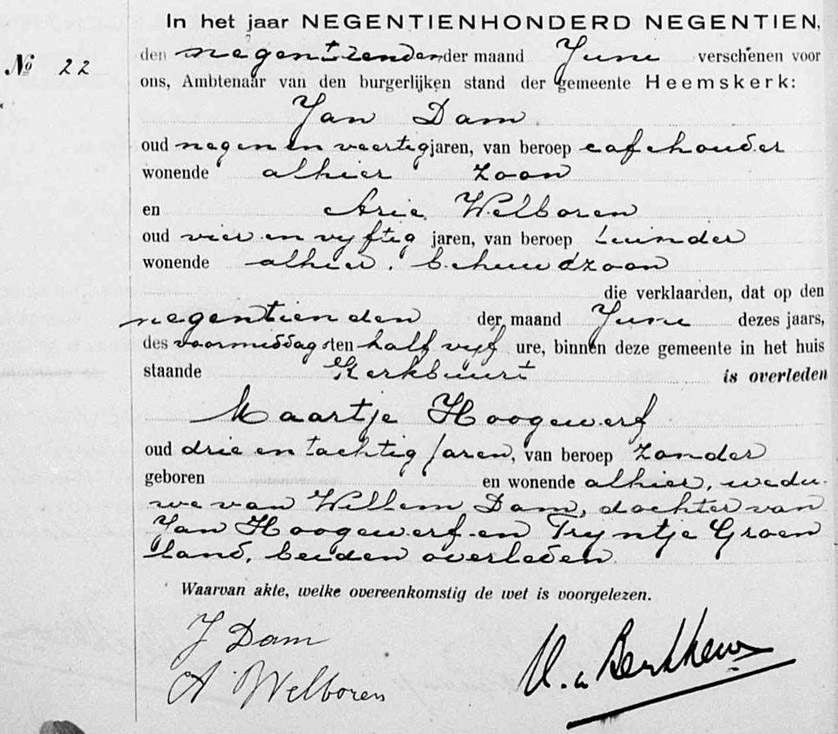 In het jaar NEGENTIENHONDERD NEGENTIEN,
den negentienden der maand Juni verschenen voor
No 22
ons, Ambtenaar van den burgerlijken stand der gemeente Heemskerk:
Jan Dam
oud negen en veertig jaren, van beroep caféhouder
wonende alhier zoon
en Arie Welboren
oud vier en vyftig jaren, van beroep tuinder
wonende alhier, behuwdzoon
die verklaarden, dat op den
negentienden der maand Juni dezes jaars,
des voormiddags ten half vyf ure, binnen deze gemeente in het huis
staande Kerkbuurt is overleden
Maartje Hoogewerf
oud drie en tachtig jaren, van beroep zonder
geboren en wonende alhier, wedu-
we van Willem Dam, dochter van
Jan Hoogewerf en Tryntje Groen
land, beiden overleden
Waarvan akte, welke overeenkomstig de wet is voorgelezen.
J Dam
A Welboren